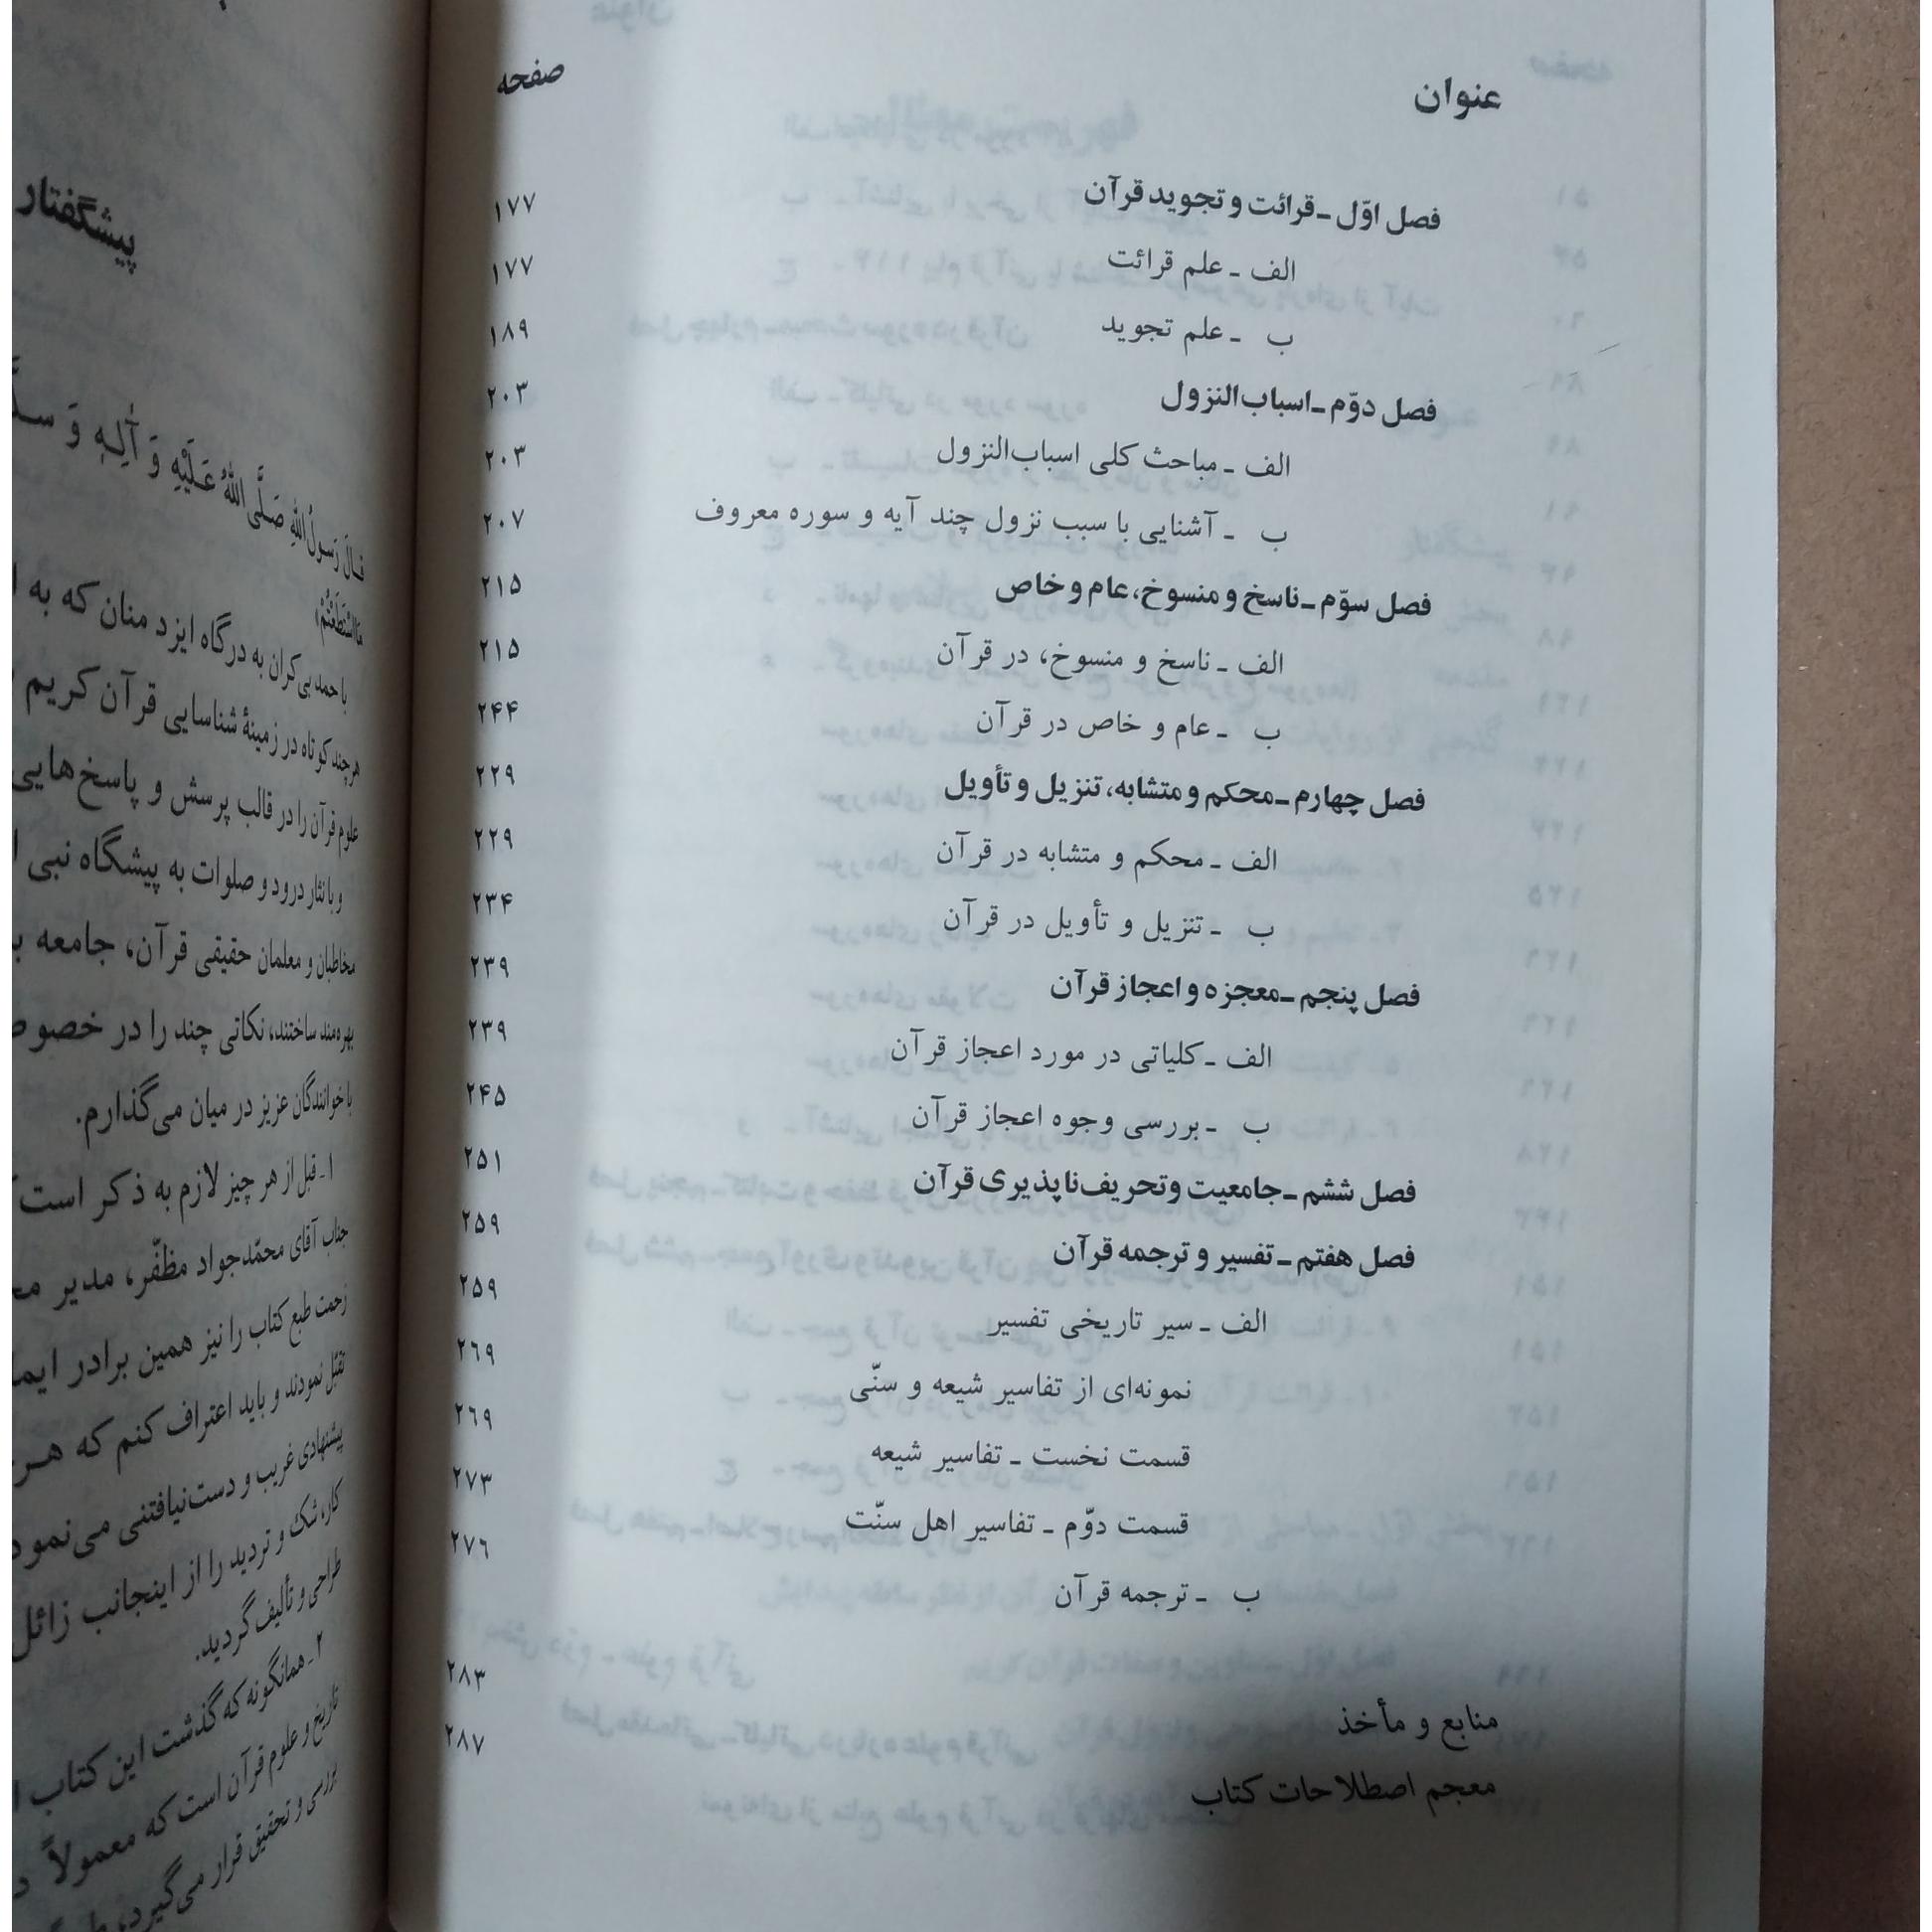 عنوان صفحه
فصل اوّل ـ قرائت و تجوید قرآن ۱۷۷
الف ـ علم قرائت ۱۷۷
ب ـ علم تجوید ۱۸۹
فصل دوّم ـ اسباب‌النزول ۲۰۳
الف ـ مباحث کلی اسباب‌النزول ۲۰۳
ب ـ آشنایی با سبب نزول چند آیه و سوره معروف ۲۰۷
فصل سوّم ـ ناسخ و منسوخ، عام و خاص ۲۱۵
الف ـ ناسخ و منسوخ، در قرآن ۲۱۵
ب ـ عام و خاص در قرآن ۲۴۴
فصل چهارم ـ محکم و متشابه، تنزیل و تأویل ۲۲۹
الف ـ محکم و متشابه در قرآن ۲۲۹
ب ـ تنزیل و تأویل در قرآن ۲۳۴
فصل پنجم ـ معجزه و اعجاز قرآن ۲۳۹
الف ـ کلیاتی در مورد اعجاز قرآن ۲۳۹
ب ـ بررسی وجوه اعجاز قرآن ۲۴۵
فصل ششم ـ جامعیت و تحریف‌ناپذیری قرآن ۲۵۱
فصل هفتم ـ تفسیر و ترجمه قرآن ۲۵۹
الف ـ سیر تاریخی تفسیر ۲۵۹
نمونه‌ای از تفاسیر شیعه و سنّی ۲۶۹
قسمت نخست ـ تفاسیر شیعه ۲۶۹
قسمت دوّم ـ تفاسیر اهل سنّت ۲۷۳
ب ـ ترجمه قرآن ۲۷۶
منابع و مأخذ ۲۸۳
معجم اصطلاحات کتاب ۲۸۷
پیشگفتار
قالَ رَسولُ اللهِ صَلَّی اللهُ عَلَیْهِ وَ آلِهِ وَ
مَااسْتَطَعْتُمْ﴾
با حمد بی‌کران به درگاه ایزد منان که به
هرچند کوتاه در زمینهٔ شناسایی قرآن کریم
علوم قرآن را در قالب پرسش و پاسخ‌هایی
و با نثار درود و صلوات به پیشگاه نبی
مخاطبان و معلمان حقیقی قرآن، جامعه
بهره‌مند ساختند، نکاتی چند را در
با خوانندگان عزیز در میان می‌گذارم.
۱ـ قبل از هر چیز لازم به ذکر است
جناب آقای محمّدجواد مظفّر، مدیر
زحمت طبع کتاب را نیز همین برادر
تقبّل نمودند و باید اعتراف کنم که
پیشنهادی غریب و دست‌نیافتنی می‌نمود
کار، شک و تردید را از اینجانب زائل
طراحی و تألیف گردید.
۲ـ همانگونه که گذشت این کتاب
تاریخ و علوم قرآن است که معمولاً
بررسی و تحقیق قرار می‌گیرد،